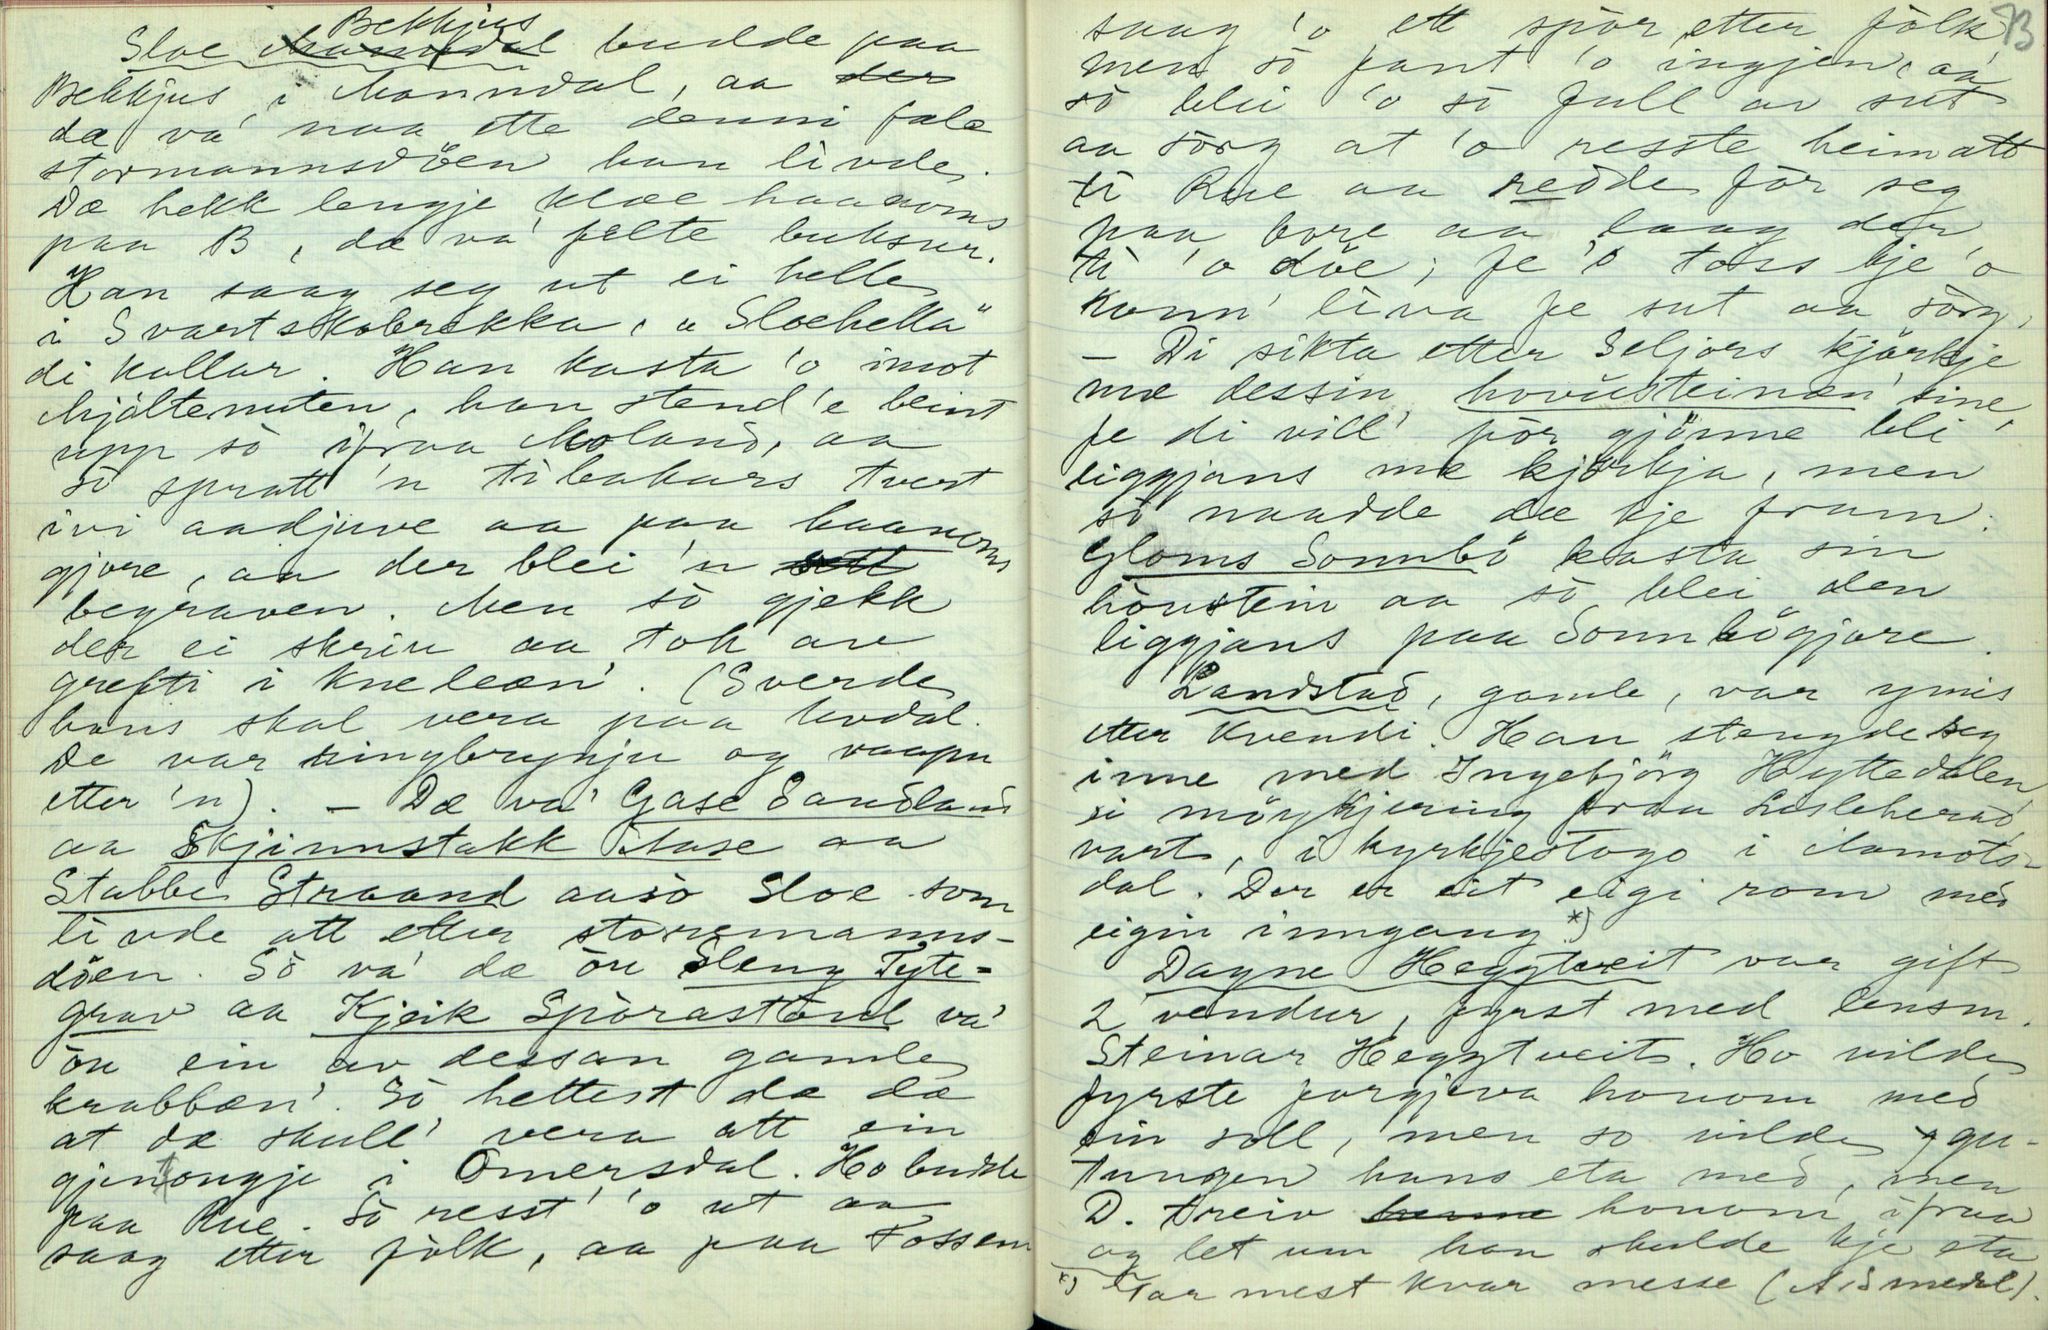 Bekkjus
Sloe Manndal budde paa
Bekkjus i Manndal, aa der
dæ va' naa ette denni fæle
stormannsdöen han livde.
Dæ hekk lengje klæe haanoms
paa B, dæ va' felte buksur.
Han saag seg ut ei helle
i Svartskobrekka, "Sloehella"
di kallar. Han kasta 'o imot
Mjaltenuten, han stend 'e beint
upp so ifraa Moland, aa
so spratt 'n tibakars tvert
ivi aadjuve aa paa haanoms
gjore, aa der blei 'n sett
begraven. Men so gjekk
der ei skriu aa tok av
grefti i kneleæn'. (Sverde
hans skal vera paa Uvdal.
De var ringbrynju og vaapn
etter 'n). – Dæ va' Gase Sandland
aa Skjinnstakk Aase aa
Stabbe Straand aasò Sloe som
livde att etter storemanns-
döen. Sò va' dæ òu Sleng Tyte-
grav aa Kjeik Spòrastònd va'
òu ein av dessan gamle
krabbæn'. Sò hettest dæ dæ
at dæ skull' vera att ein
gjentongje i Òmersdal. Ho budde
paa Rue. Sò resst' 'o ut aa
saag etter fòlk, aa paa Fossem
saag 'o ett spòr etter fòlk, 73
men sò fant 'o ingjen, aa
sò blei 'o sò full av sut
aa sòrg at 'o resste heimatt
ti Rue aa redde fòr seg
paa bore aa laag der
ti 'o döe; fe 'o toss kje 'o
kunn' liva fe sut aa sòrg.
– Di sikta etter Seljors kjörkje
mæ dessin hovusteinæn' sine,
fe di vill' fòr gjönne bli
liggjans mæ kjörkja, men
sò naadde dæ kje fram.
Gloms Sonnbö kasta sin
hònstein aa sò blei den
liggjans paa Sonnbögjore.
Landstad, gamle, var ymis
etter Kvendi. Han stengde seg
inne med Ingebjörg Hyttedalen
ei möykjering fraa Lisleherad
vart, i kyrkjestogo i Aamots-
dal. Der er eit eigi rom med
eigin inngang *)
Dagne Heggtveit var gift
2 vendur, fyrst med lensm.
Steinar Heggtveit. Ho vilde
fyrste forgjeva honom med
ein soll, men so vilde gu-
tungen hans eta med, men
D. dreiv honom ifraa
og let um han skulde kje eta
*) Var mest kvar messe (AaSmedal).